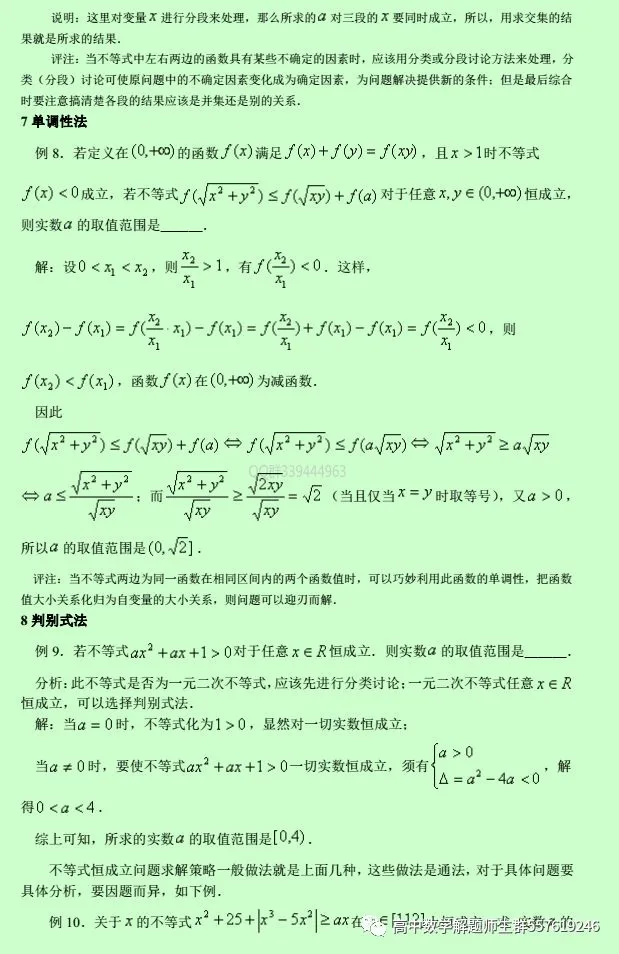 说明：这里对变量 x 进行分段来处理，那么所求的 a 对三段的 x 要同时成立，所以，用求交集的结
果就是所求的结果．
评注：当不等式中左右两边的函数具有某些不确定的因素时，应该用分类或分段讨论方法来处理，分
类（分段）讨论可使原问题中的不确定因素变化成为确定因素，为问题解决提供新的条件；但是最后综合
时要注意搞清楚各段的结果应该是并集还是别的关系．
7 单调性法
例 8．若定义在 (0,+∞) 的函数 f(x) 满足 f(x)+f(y)=f(xy)，且 x>1 时不等式
f(x)<0 成立，若不等式 f(√(x²+y²))≤f(√(xy))+f(a) 对于任意 x,y∈(0,+∞) 恒成立，
则实数 a 的取值范围是______．
解：设 0<x₁<x₂，则 x₂/x₁>1，有 f(x₂/x₁)<0．这样，
f(x₂)−f(x₁)=f(x₂/x₁·x₁)−f(x₁)=f(x₂/x₁)+f(x₁)−f(x₁)=f(x₂/x₁)<0，则
f(x₂)<f(x₁)，函数 f(x) 在 (0,+∞) 为减函数．
因此
f(√(x²+y²))≤f(√(xy))+f(a)⇔f(√(x²+y²))≤f(a√(xy))⇔√(x²+y²)≥a√(xy)
QQ群339444963
⇔a≤√(x²+y²)/√(xy)；而 √(x²+y²)/√(xy)≥√(2xy)/√(xy)=√2（当且仅当 x=y 时取等号），又 a>0，
所以 a 的取值范围是 (0,√2]．
评注：当不等式两边为同一函数在相同区间内的两个函数值时，可以巧妙利用此函数的单调性，把函数
值大小关系化归为自变量的大小关系，则问题可以迎刃而解．
8 判别式法
例 9．若不等式 ax²+ax+1>0 对于任意 x∈R 恒成立．则实数 a 的取值范围是______．
分析：此不等式是否为一元二次不等式，应该先进行分类讨论；一元二次不等式任意 x∈R
恒成立，可以选择判别式法．
解：当 a=0 时，不等式化为 1>0，显然对一切实数恒成立；
当 a≠0 时，要使不等式 ax²+ax+1>0 一切实数恒成立，须有 {a>0 Δ=a²−4a<0，解
得 0<a<4．
综上可知，所求的实数 a 的取值范围是 [0,4)．
不等式恒成立问题求解策略一般做法就是上面几种，这些做法是通法，对于具体问题要
具体分析，要因题而异，如下例．
例 10．关于 x 的不等式 x²+25+|x³−5x²|≥ax 在 ∈[112] 恒成立 求 实数 a 的
高中数学解题师生群557619246